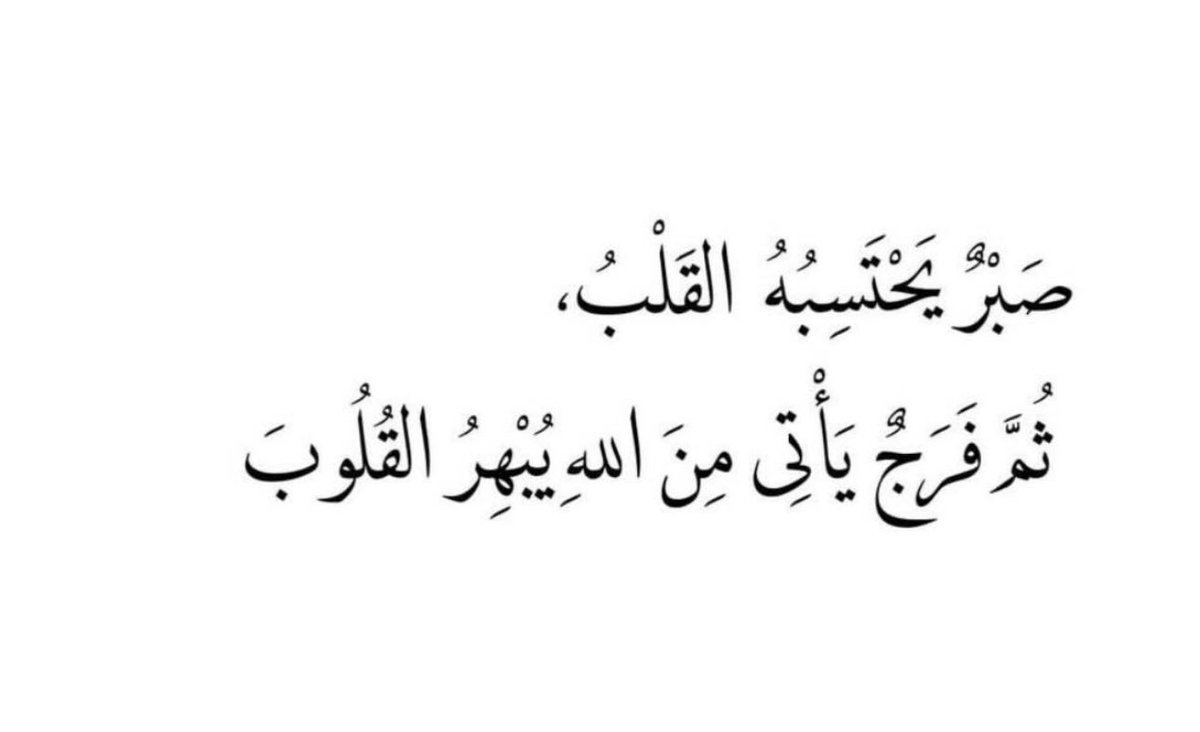 صَبْرٌ يَحْتَسِبُهُ القَلْبُ،
ثُمَّ فَرَجٌ يَأْتِى مِنَ اللهِ يُبْهِرُ القُلُوبَ